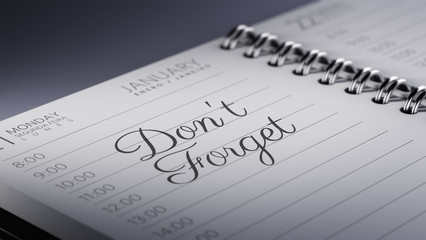 22
JANUARY
ENERO / JANEIRO
MONDAY
8:00
9:00
10:00
11:00
12:00
13:00
14:00
15:00
Don't
Forget